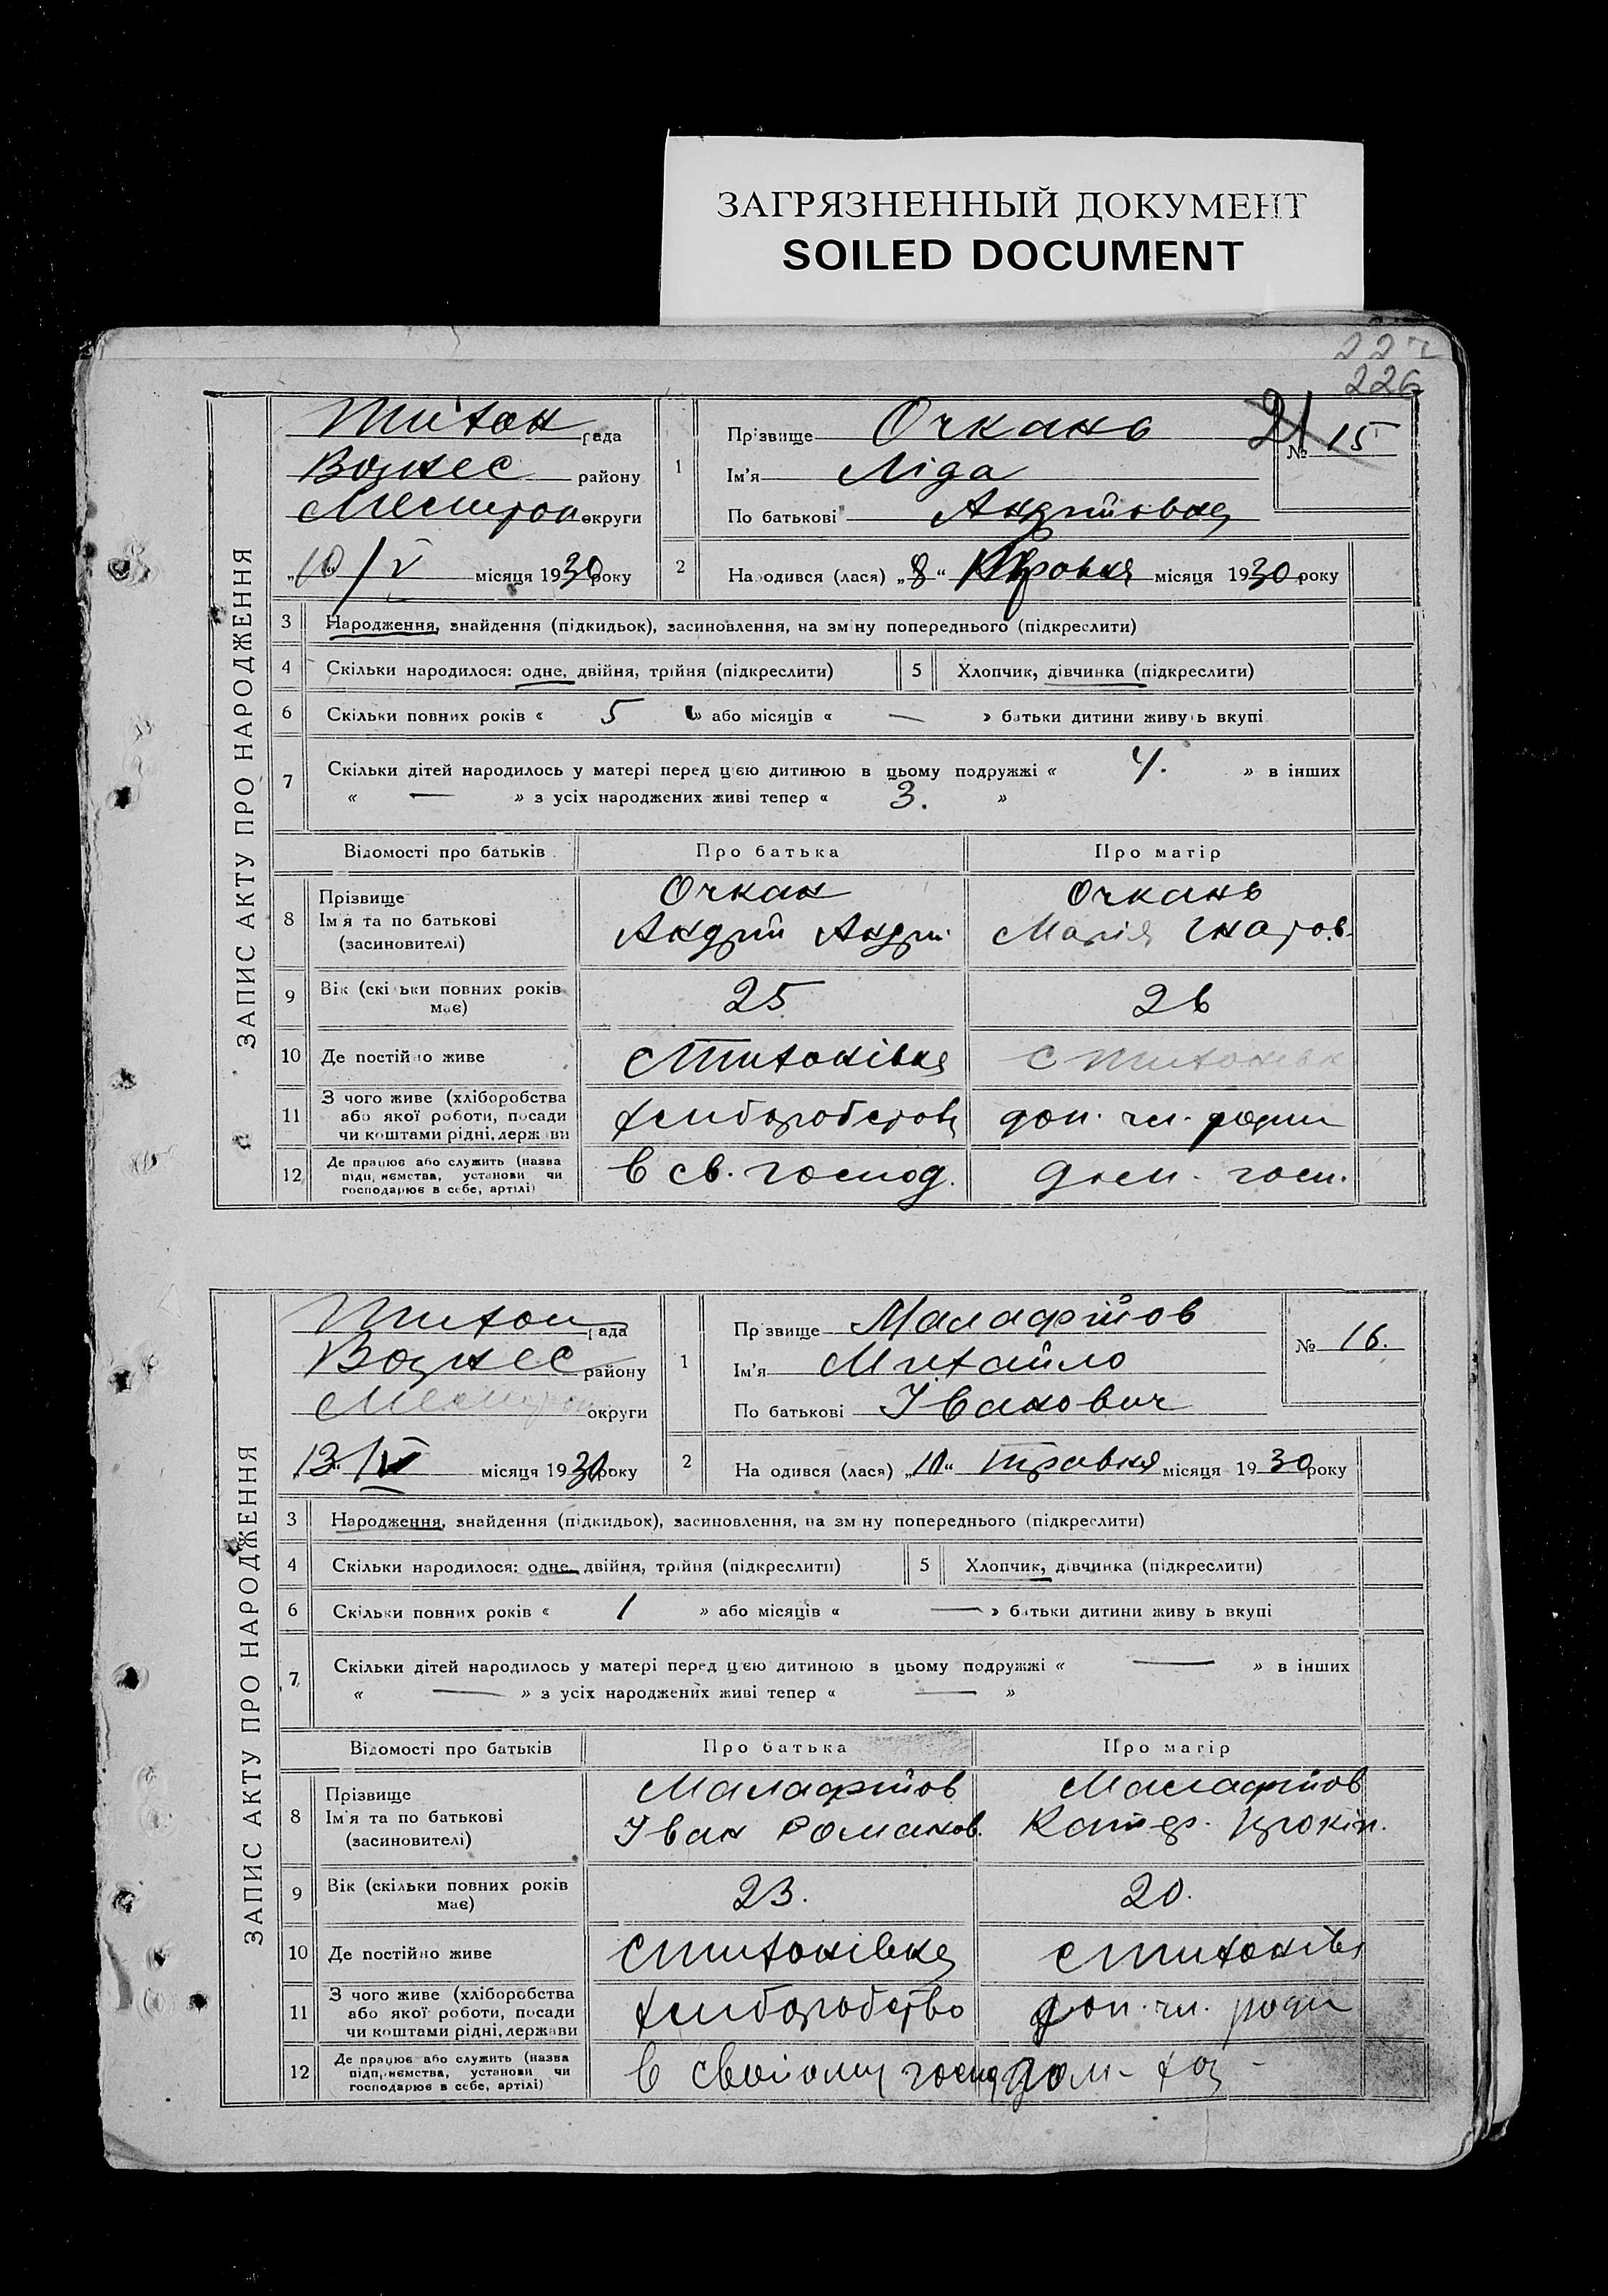 ЗАГРЯЗНЕННЫЙ ДОКУМЕНТ
SOILED DOCUMENT
227
226
ЗАПИС АКТУ ПРО НАРОДЖЕННЯ
Тихон рада
Вознес району
округи
„10“ / V місяця 1930 року
1 Прізвище Очкань
Ім'я Ліда
По батькові Андріївна
№ 15
21
2 Народився (лася) „8“ місяця 1930 року
3 Народження, знайдення (підкидьок), засиновлення, на зміну попереднього (підкреслити)
4 Скільки народилося: одне, двійня, трійня (підкреслити) 5 Хлопчик, дівчинка (підкреслити)
6 Скільки повних років « 5 » або місяців « — » батьки дитини живуть вкупі
7 Скільки дітей народилось у матері перед цією дитиною в цьому подружжі « 4. » в інших
« — » з усіх народжених живі тепер « 3. »
Відомості про батьків Про батька Про матір
8 Прізвище Очкан Очкань
Ім'я та по батькові Андрій Андрій Марія Гнатов.
(засиновителі)
9 Вік (скільки повних років має) 25 26
10 Де постійно живе с Тихонівка с Тихонівк
11 З чого живе (хліборобства хлиборобство доп. чл. родин
або якої роботи, посади
чи коштами рідні, держави
12 Де працює або служить (назва в св. господ. дом. госп.
підприємства, установи чи
господарює в себе, артілі)
ЗАПИС АКТУ ПРО НАРОДЖЕННЯ
Тихон рада
Вознес району
округи
„13“ / V місяця 1930 року
1 Прізвище Малафійов
Ім'я Михайло
По батькові Іванович
№ 16.
2 Народився (лася) „10“ травня місяця 1930 року
3 Народження, знайдення (підкидьок), засиновлення, на зміну попереднього (підкреслити)
4 Скільки народилося: одне, двійня, трійня (підкреслити) 5 Хлопчик, дівчинка (підкреслити)
6 Скільки повних років « 1 » або місяців « — » батьки дитини живуть вкупі
7 Скільки дітей народилось у матері перед цією дитиною в цьому подружжі « — » в інших
« — » з усіх народжених живі тепер « — »
Відомості про батьків Про батька Про матір
8 Прізвище Малафійов Малафійов
Ім'я та по батькові Іван Романов. Катер. Прокіп.
(засиновителі)
9 Вік (скільки повних років має) 23. 20.
10 Де постійно живе с Тихонівка с Тихонів
11 З чого живе (хліборобства хлиборобство доп. чл. роди
або якої роботи, посади
чи коштами рідні, держави
12 Де працює або служить (назва в своїому госпо дом. хоз
підприємства, установи чи
господарює в себе, артілі)